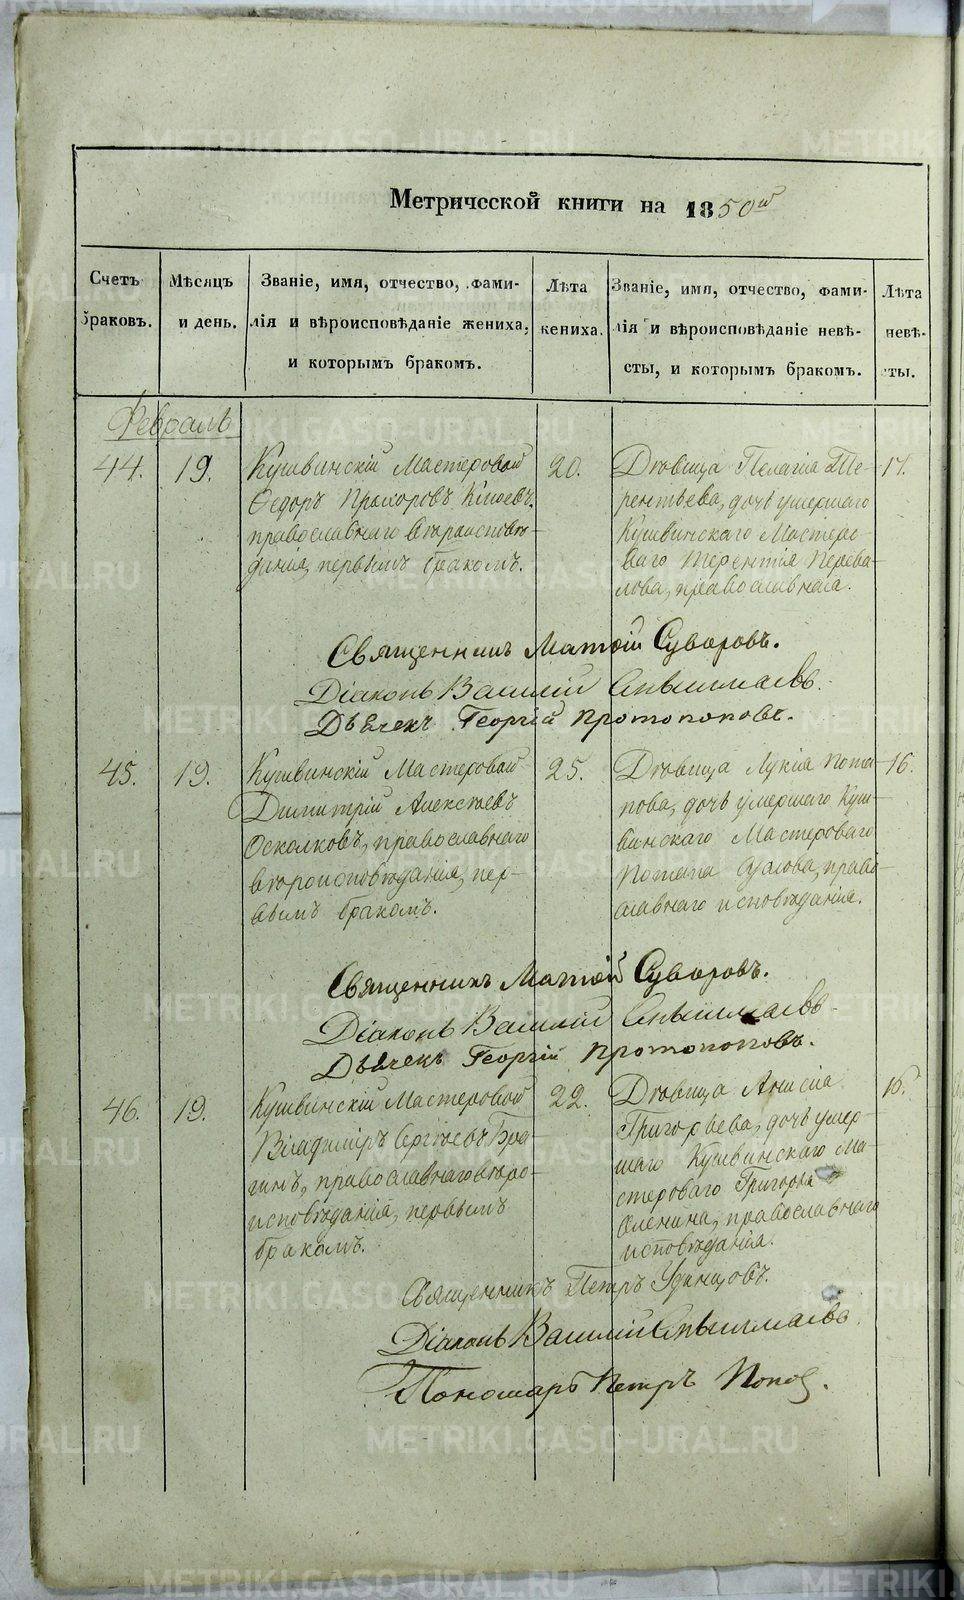 Метрической книги на 1850й
Счетъ браковъ.
Мѣсяцъ и день.
Званіе, имя, отчество, фами-
лія и вѣроисповѣданіе жениха,
и которымъ бракомъ.
Лѣта жениха.
Званіе, имя, отчество, фами-
лія и вѣроисповѣданіе невѣ-
сты, и которымъ бракомъ.
Лѣта невѣ-
сты.
Февраль
44.
19.
Кушвинскій Мастеровой
Ѳедоръ Прохоровъ
православнаго вѣроисповѣ-
данія, первымъ бракомъ.
20.
Дѣвица Пелагія Те-
рентьева, дочь умершаго
Кушвинскаго Мастеро-
ваго Терентія Перева-
лова, православная.
17.
Священникъ Матѳій Суворовъ.
Діаконъ Василій
Дьячекъ Георгій Протопоповъ.
45.
19.
Кушвинскій Мастеровой
Димитрій Алексѣевъ
Осколковъ, православнаго
вѣроисповѣданія, пер-
вымъ бракомъ.
25.
Дѣвица Лукія Пота-
пова, дочь умершаго Куш-
винскаго Мастероваго
Потапа право-
славнаго исповѣданія.
16.
Священникъ Матѳій Суворовъ.
Діаконъ Василій
Дьячекъ Георгій Протопоповъ.
46.
19.
Кушвинскій Мастеровой
Владиміръ Сергѣевъ Бро-
гинъ, православнаго вѣро-
исповѣданія, первымъ
бракомъ.
22.
Дѣвица Анисія
Григорьева, дочь умер-
шаго Кушвинскаго Ма-
стероваго Григорья
Оленина, православнаго
исповѣданія.
16.
Священникъ Петръ Удинцовъ.
Діаконъ Василій
Пономарь Петръ Попов.
METRIKI.GASO-URAL.RU